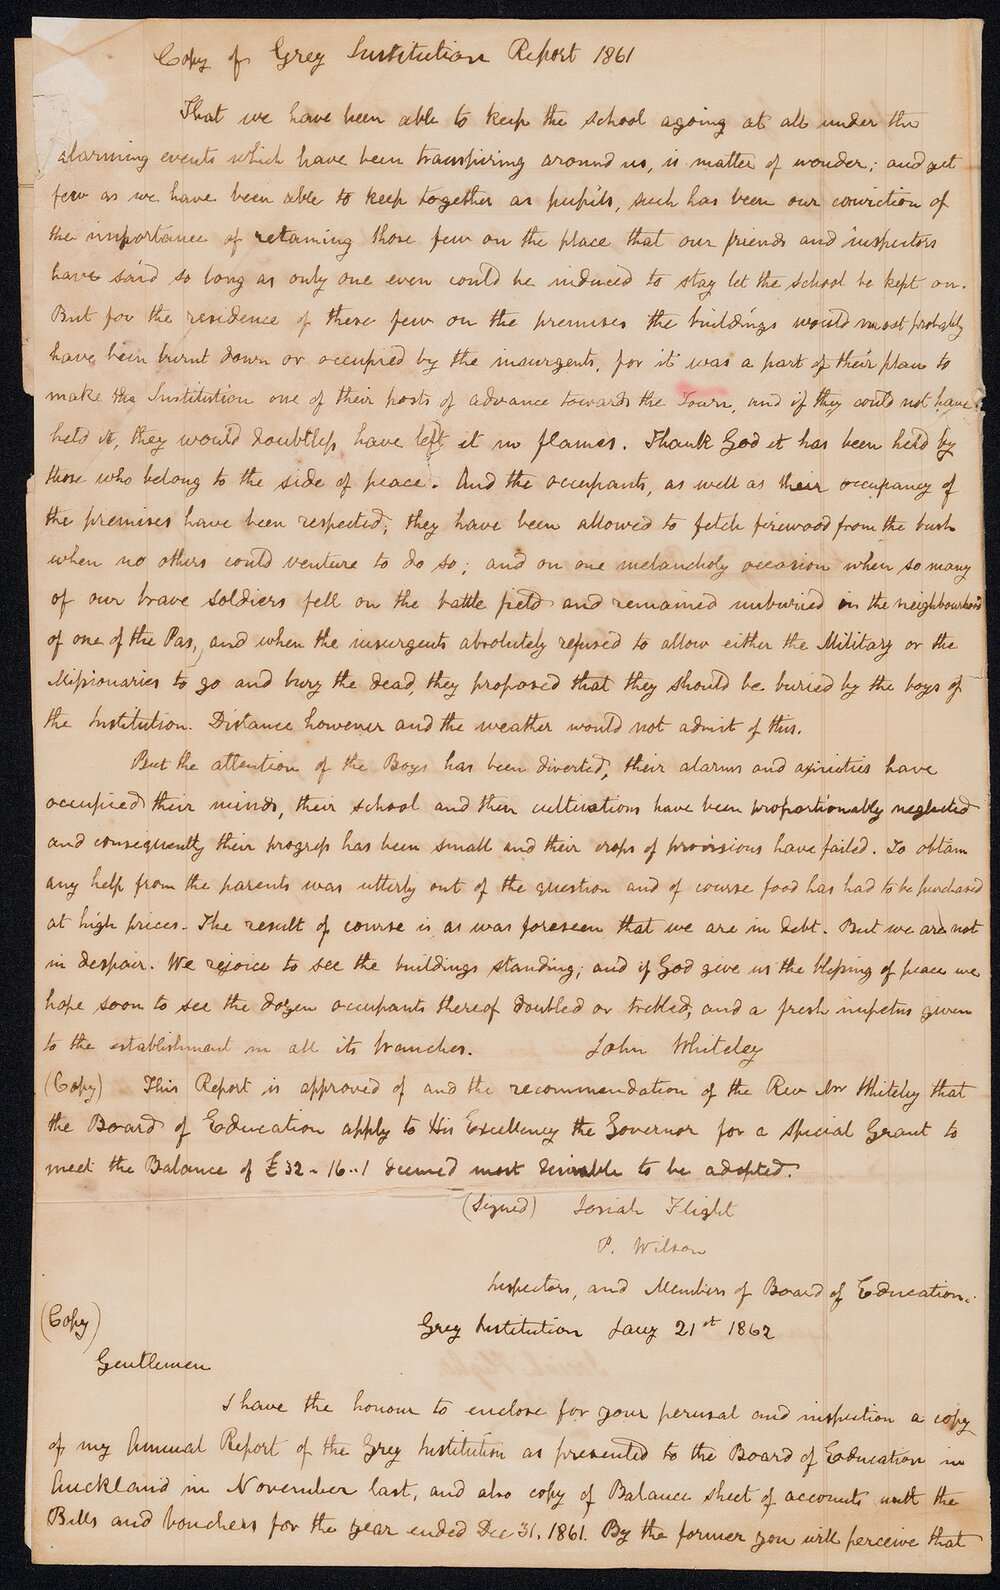 Copy of Grey Institution Report 1861
That we have been able to keep the school agoing at all under the
alarming events which have been transpiring around us, is matter of wonder; and yet
few as we have been able to keep together as pupils, such has been our conviction of
the importance of retaining those few on the place that our friends and inspectors
have said so long as only one even could be induced to stay let the school be kept on.
But for the residence of these few on the premises the buildings would most probably
have been burnt down or occupied by the insurgents, for it was a part of their plan to
make the Institution one of their posts of advance towards the Town, and if they could not have
held it, they would doubtless have left it in flames. Thank God it has been held by
those who belong to the side of peace. And the occupants, as well as their occupancy of
the premises have been respected; they have been allowed to fetch firewood from the bush
when no others could venture to do so; and on one melancholy occasion when so many
of our brave soldiers fell on the battle field and remained unburied in the neighbourhood
of one of the Pas, and when the insurgents absolutely refused to allow either the Military or the
Missionaries to go and bury the dead, they proposed that they should be buried by the boys of
the Institution. Distance however and the weather would not admit of this.
But the attention of the Boys has been diverted, their alarms and axieties have
occupied their minds, their school and their cultivations have been proportionably neglected
and consequently their progress has been small and their crops of provisions have failed. To obtain
any help from the parents was utterly out of the question and of course food has had to be purchased
at high prices. The result of course is as was foreseen that we are in debt. But we are not
in despair. We rejoice to see the buildings standing; and if God give us the blessing of peace we
hope soon to see the dozen occupants thereof doubled or trebled, and a fresh impetus given
to the establishment in all its branches. John Whiteley
(Copy) This Report is approved of and the recommendation of the Rev Mr Whiteley that
the Board of Education apply to His Excellency the Governor for a special Grant to
meet the Balance of £32-16..1 deemed most desirable to be adopted.
(Signed) Josiah Flight
P. Wilson
Inspectors, and Members of Board of Education.
(Copy) Grey Institution Jany 21st 1862
Gentlemen
I have the honour to enclose for your perusal and inspection a copy
of my Annual Report of the Grey Institution as presented to the Board of Education in
Auckland in November last, and also copy of Balance sheet of accounts with the
Bills and Vouchers for the year ended Dec 31. 1861. By the former you will perceive that